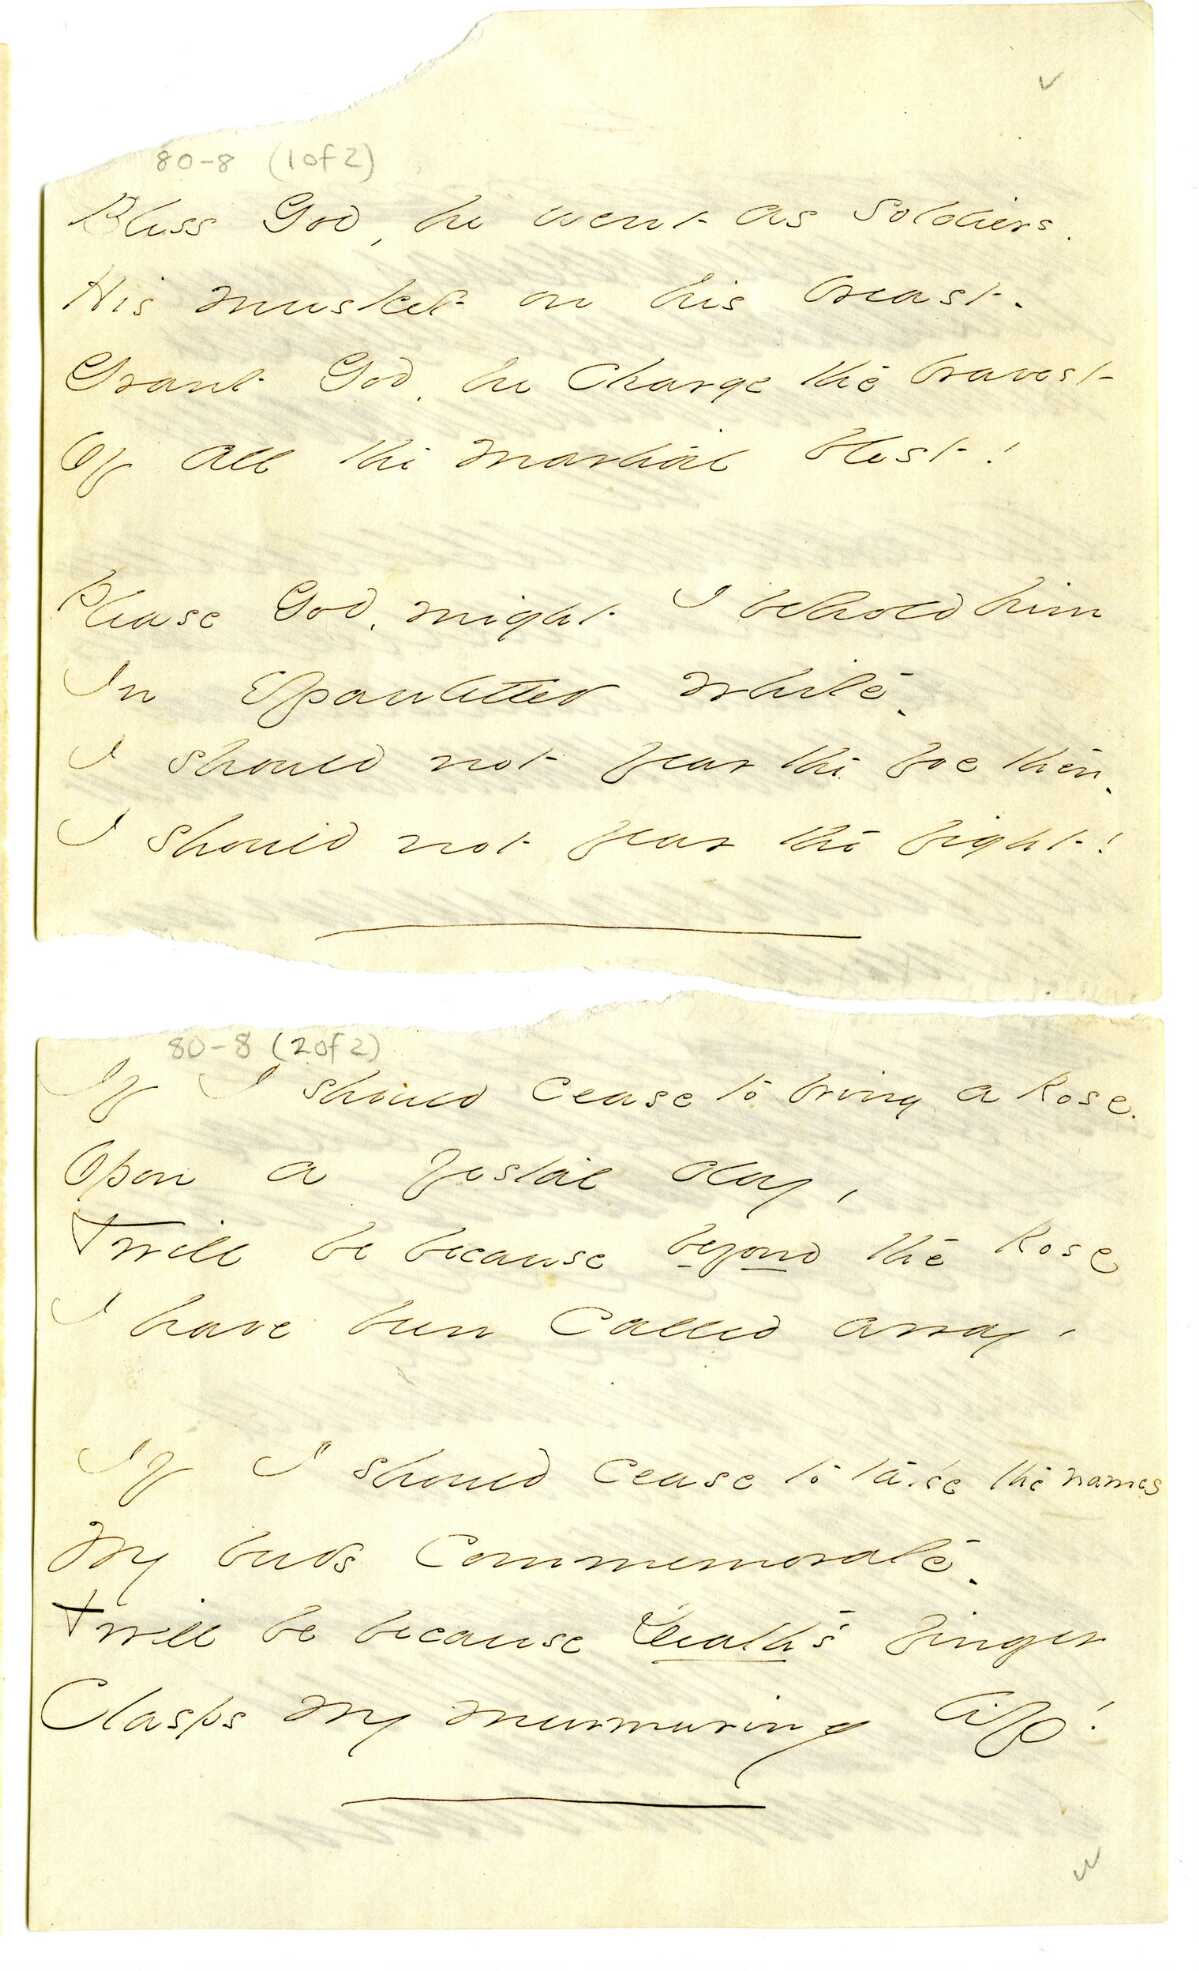 80-8 (1 of 2)
Bless God, he went as soldiers.
His musket on his breast.
Grant God, he charge the bravest
Of all the martial blest!
Please God, might I behold him
In Epauletted white.
I should not fear the foe then.
I should not fear the fight!
80-8 (2 of 2)
If I should cease to bring a Rose.
Upon a festal day,
'Twill be because beyond the Rose
I have been called away,
If I should cease to take the names
My buds commemorate.
'Twill be because Death's finger
Clasps my murmuring lip!